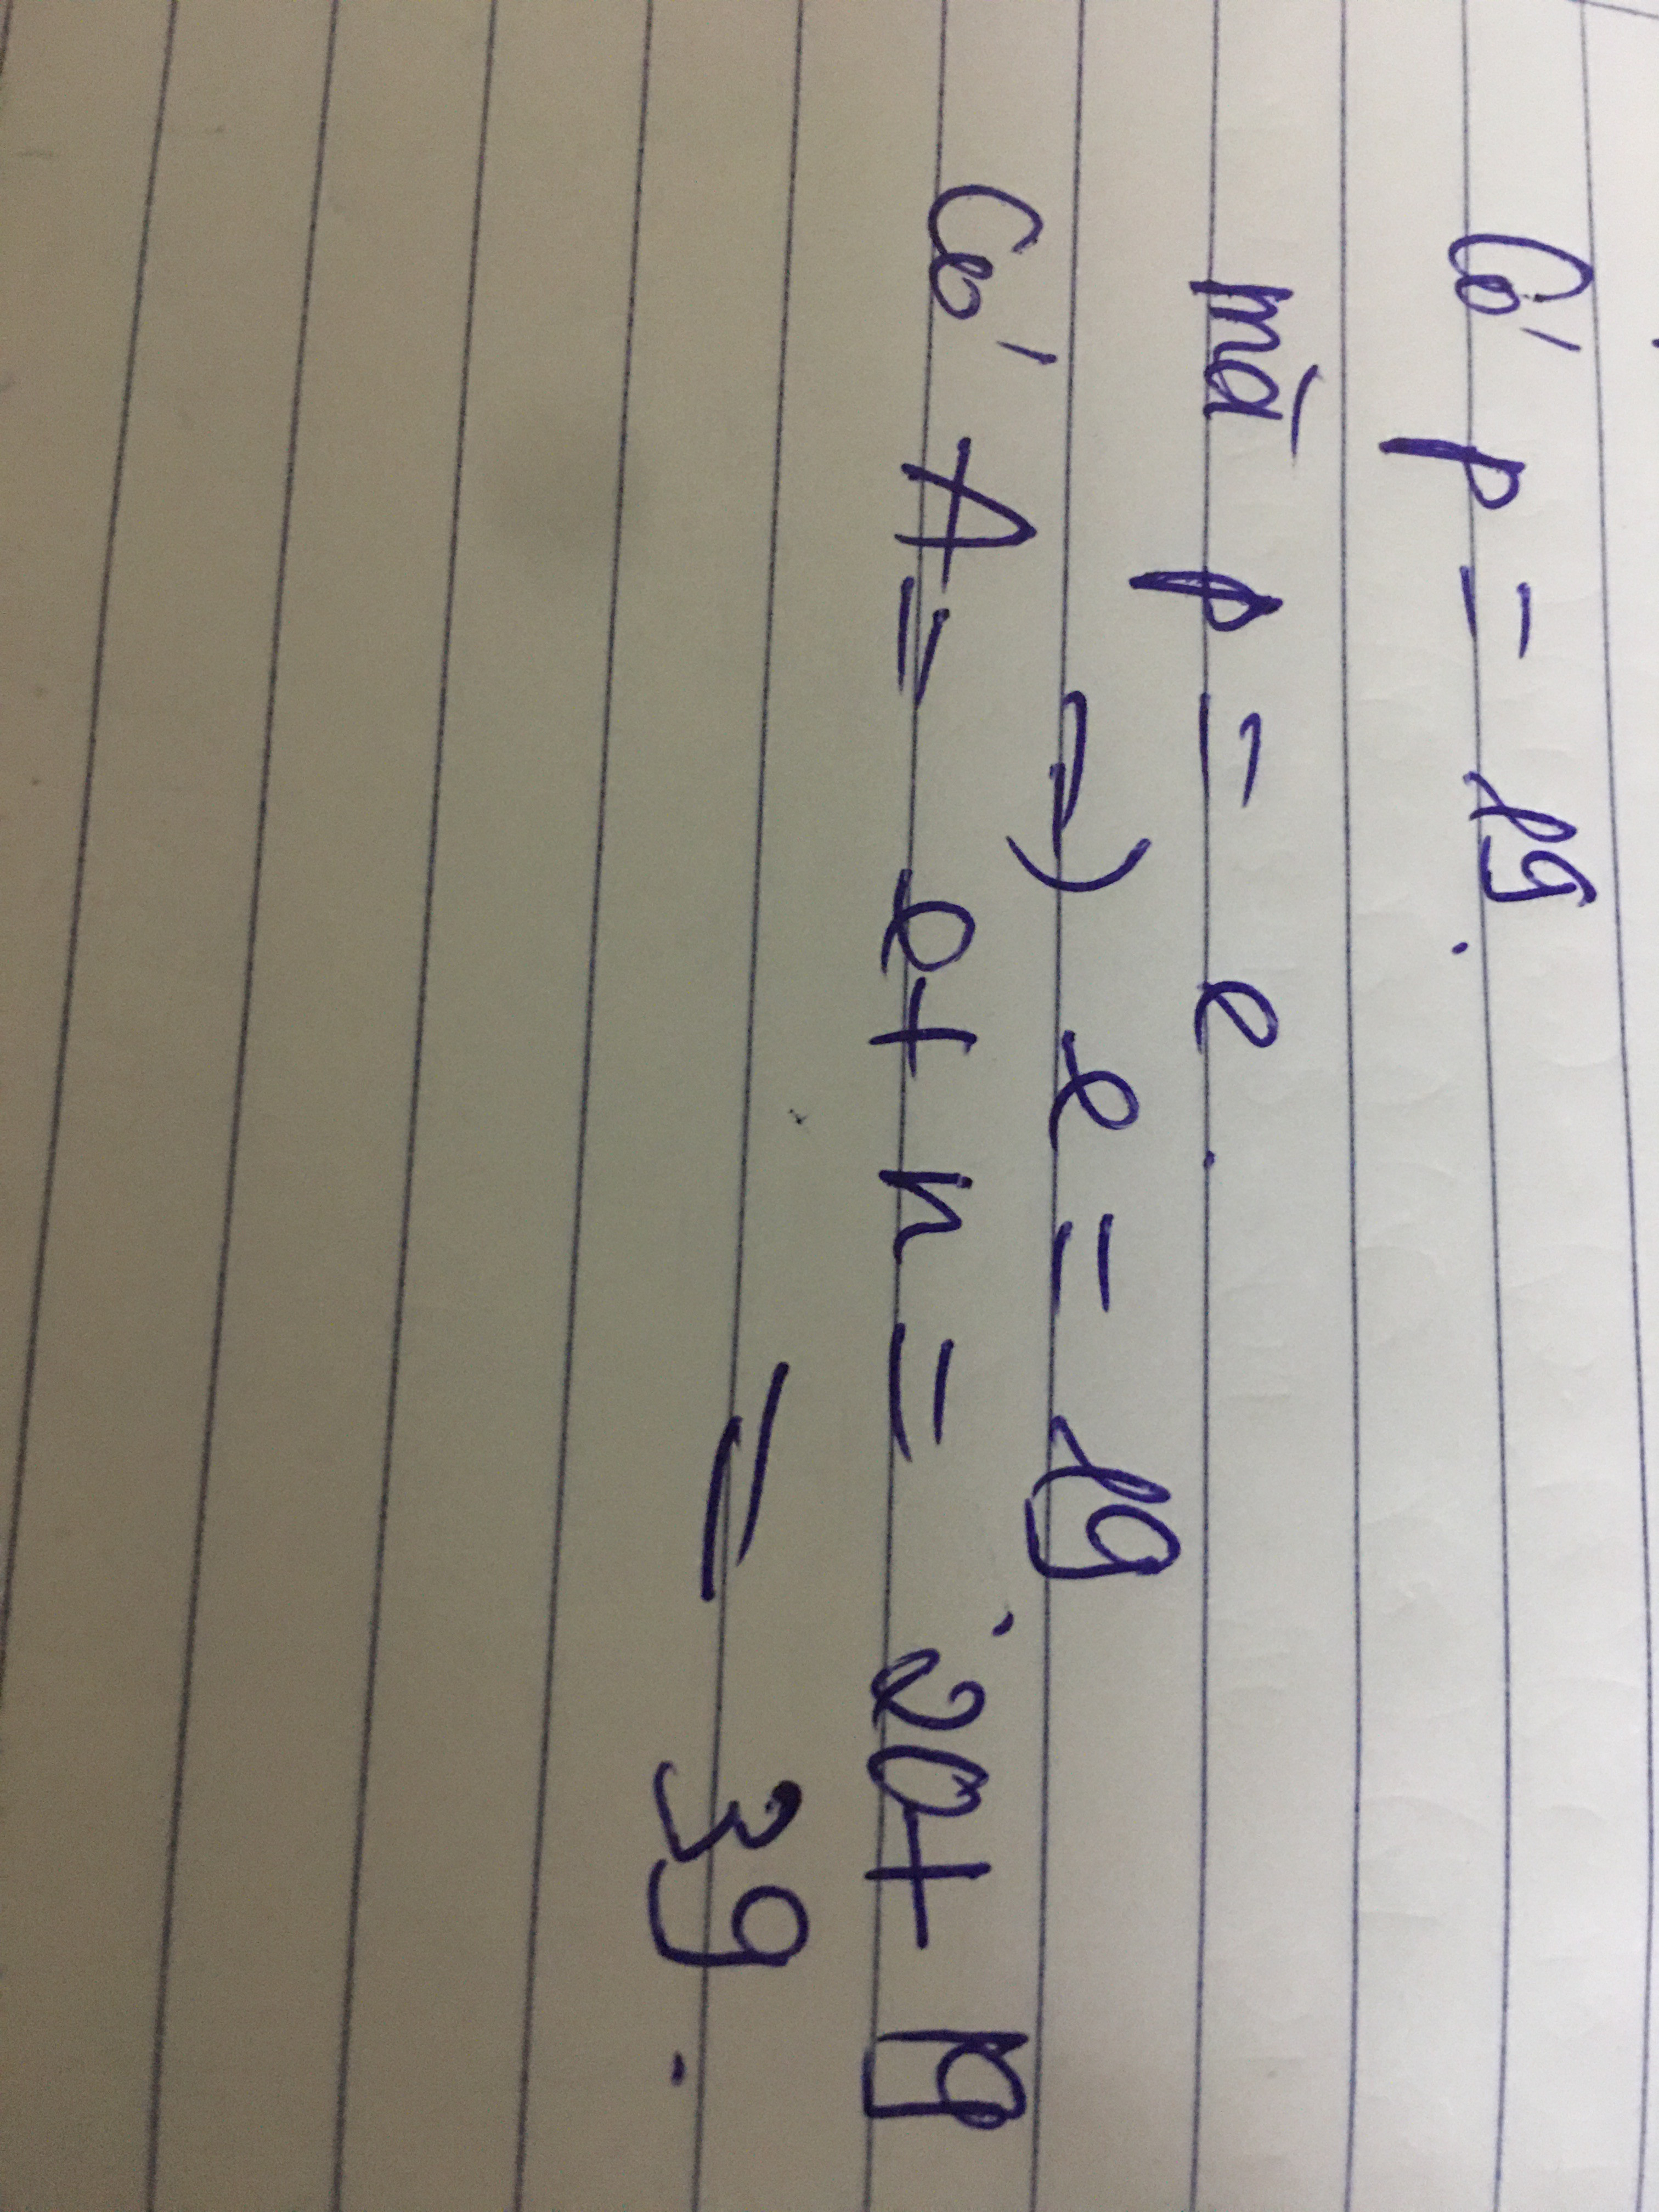 Có p = 19.
mà p = e.
=) e = 19.
Có A = e + n = 20 + 19
= 39.